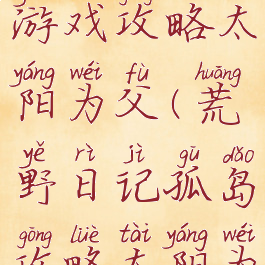 游戏攻略太
yáng wéi fù huāng
阳为父(荒
yě rì jì gū dǎo
野日记孤岛
gōng lüè tài yáng wéi
攻略太阳为